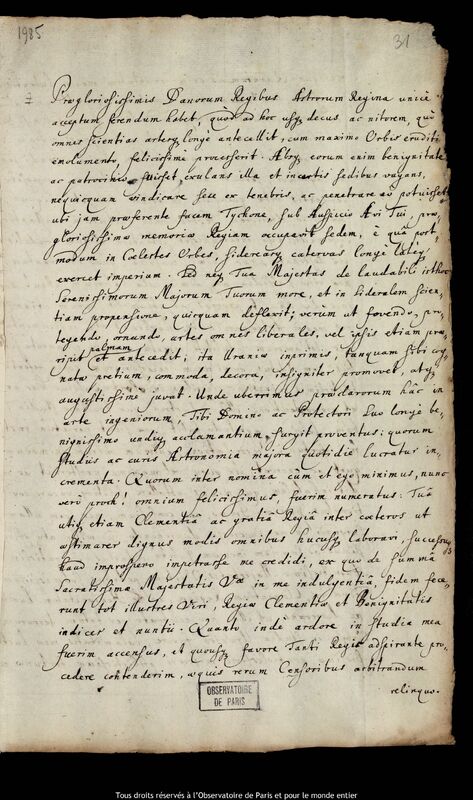 1985
31
Prægloriosissimis Danorum Regibus Astrorum Regina unicè
acceptum ferendum habet, quòd ad hoc usq; decus ac nitorem, quô
omnes scientias artesq; longè antecellit, cum maximo Orbis eruditi
emolumento, felicissimè processerit. Absq; eorum enim benignitate
ac patrocinio fuisset, exulans illa et incertis sedibus vagans,
nequicquam vindicare sese ex tenebris, ac penetrare eò potuisset
ubi jam præferente facem Tychone, sub Auspicio Avi Tui præ
gloriosissimæ memoriæ Regiam occupavit sedem, è quâ post
modum in Cœlestes Orbes, sidereasq; catervas longè latèq;
exercet imperium. Sed neq; Tua Majestas de laudabili isthoc
Serenissimorum Majorum Tuorum more, et in sideralem scien-
tiam propensione, quicquam deflexit; verum ut fovendo, pro-
tegendo, ornando, artes omnes liberales, vel ipsis etiam præ-
ripit palmam et antecedit; ita Uraniæ inprimis, tanquam sibi cog
natæ pretium, commoda, decora, insigniter promovet, atq;
augustissimè juvat. Unde uberrimus præclarorum hâc in
arte ingeniorum, Tibi Domino ac Protectori suo longe be-
nignissimo undiq; acclamantium, surgit proventus: quorum
studiis ac curis Astronomia majora quotidie lucratur in-
crementa. Quorum inter nomina cùm et ego minimus, nunc
verò proh! omnium felicissimus, fuerim numeratus: Tuâ
utiq; etiam Clementiâ ac gratiâ Regiâ inter cæteros ut
æstimarer dignus modis omnibus hucusq; laboravi, successuq;
haud improspero impetrasse me credidi, ex quo de summâ
Sacratissimæ Majestatis Væ in me indulgentiâ, fidem fece-
runt tot illustres Viri, Regiæ Clementiæ et Benignitatis
indices et nuntii. Quanto indè ardore in studia mea
fuerim accensus, et quousq; favore Tanti Regis adspirante pro-
cedere contenderim, æquis rerum Censoribus arbitrandum
relinquo.
OBSERVATOIRE
DE PARIS
Tous droits réservés à l'Observatoire de Paris et pour le monde entier